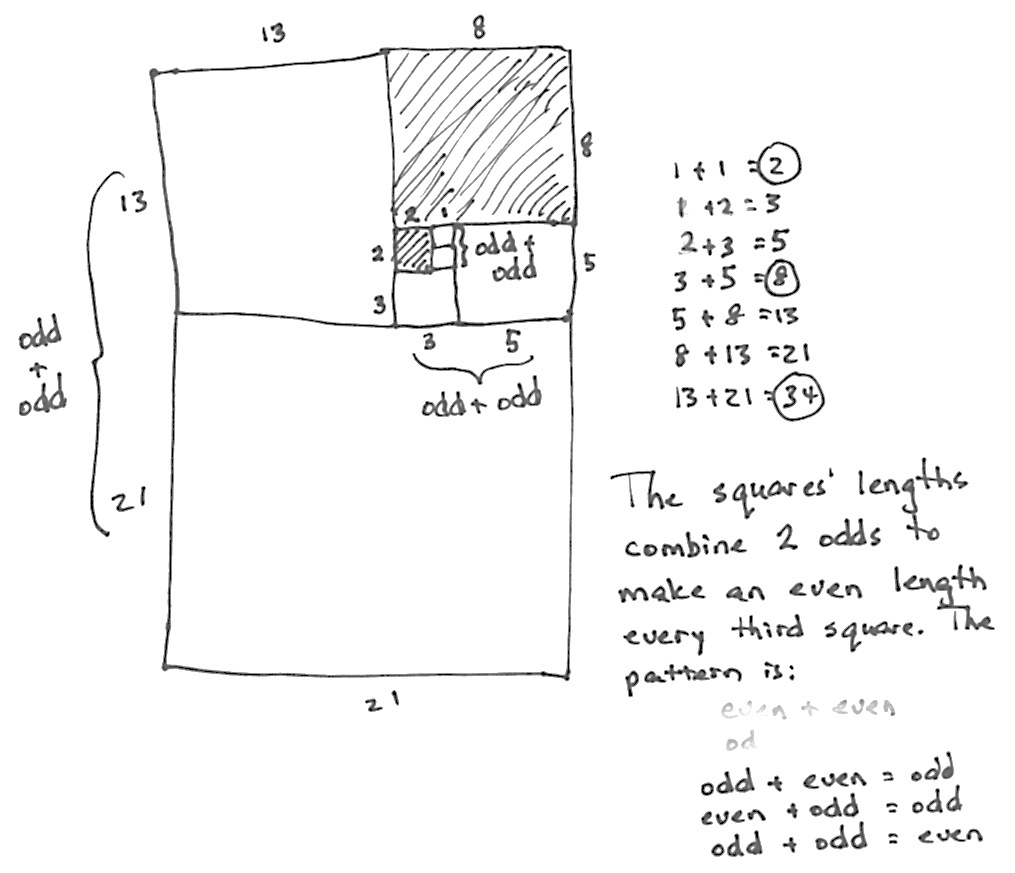 13
8
13
8
2
1
2
odd +
odd
5
3
3
5
odd + odd
odd
+
odd
21
21
1 + 1 = 2
1 + 2 = 3
2 + 3 = 5
3 + 5 = 8
5 + 8 = 13
8 + 13 = 21
13 + 21 = 34
The squares' lengths
combine 2 odds to
make an even length
every third square. The
pattern is:
even + even
od
odd + even = odd
even + odd = odd
odd + odd = even